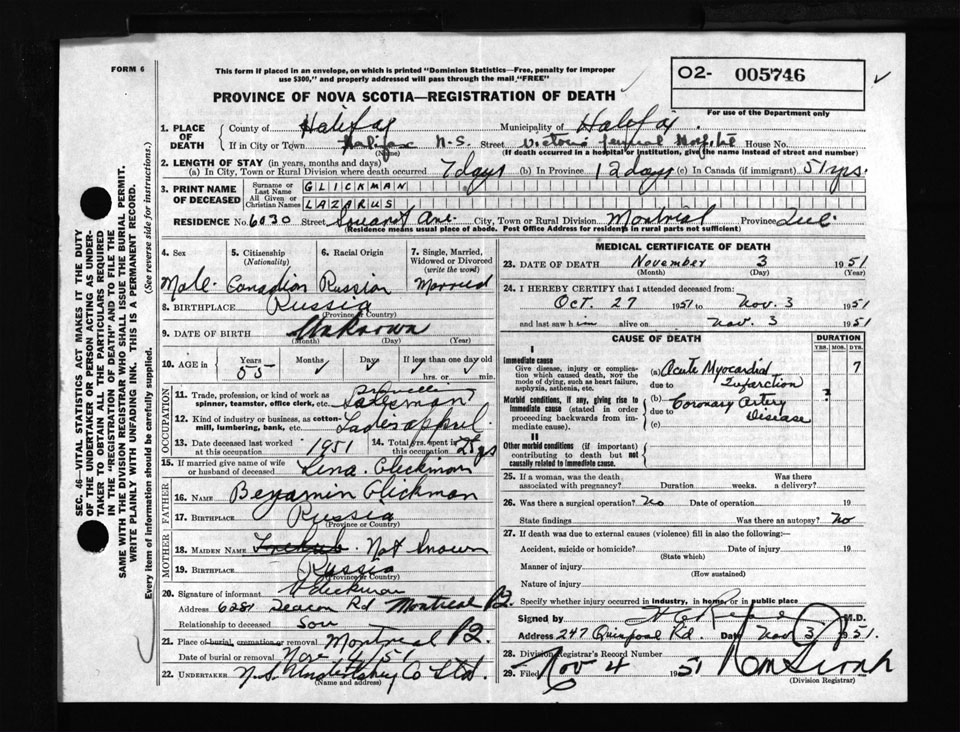 FORM 6
This form if placed in an envelope, on which is printed "Dominion Statistics—Free, penalty for improper
use $300," and properly addressed will pass through the mail, "FREE"
O2- 005746
PROVINCE OF NOVA SCOTIA—REGISTRATION OF DEATH
For use of the Department only
1. PLACE OF DEATH
County of Halifax Municipality of Halifax
If in City or Town Halifax N.S. Street Victoria General Hospital House No.
(Name) (If death occurred in a hospital or institution, give the name instead of street and number)
2. LENGTH OF STAY (in years, months and days)
(a) In City, Town or Rural Division where death occurred 7 days (b) In Province 12 days (c) In Canada (if immigrant) 51 yrs.
3. PRINT NAME OF DECEASED
Surname or Last Name GLICKMAN
All Given or Christian Names LAZARUS
RESIDENCE No. 6030 Street Ave. City, Town or Rural Division Montreal Province Que
(Residence means usual place of abode. Post Office Address for residents in rural parts not sufficient)
4. Sex Male
5. Citizenship (Nationality) Canadian
6. Racial Origin Russian
7. Single, Married, Widowed or Divorced (write the word) Married
8. BIRTHPLACE Russia
(Province or Country)
9. DATE OF BIRTH Unknown
(Month) (Day) (Year)
10. AGE in Years 55 Months Days If less than one day old
hrs. or min.
OCCUPATION
11. Trade, profession, or kind of work as spinner, teamster, office clerk, etc. Travelling Salesman
12. Kind of industry or business, as cotton-mill, lumbering, bank, etc. Ladies apparel
13. Date deceased last worked at this occupation 1951 14. Total yrs. spent in this occupation 28 yrs
15. If married give name of wife or husband of deceased Lena Glickman
FATHER
16. NAME Benjamin Glickman
17. BIRTHPLACE Russia
(Province or Country)
MOTHER
18. MAIDEN NAME Not known
19. BIRTHPLACE Russia
(Province or Country)
20. Signature of informant Glickman
Address 6281 Deacon Rd Montreal P2.
Relationship to deceased Son
21. Place of burial, cremation or removal Montreal P2.
Date of burial or removal Nov 4/51
22. UNDERTAKER N.S. Undertaking Co Ltd.
(Name and address)
MEDICAL CERTIFICATE OF DEATH
23. DATE OF DEATH November 3 1951
(Month) (Day) (Year)
24. I HEREBY CERTIFY that I attended deceased from:
Oct. 27 1951 to Nov. 3 1951
and last saw him alive on Nov. 3 1951
CAUSE OF DEATH DURATION
YRS. MOS. DYS.
I
Immediate cause
Give disease, injury or complication which caused death, NOT the mode of dying, such as heart failure, asphyxia, asthenia, etc.
(a) Acute Myocardial 7
due to Infarction
Morbid conditions, if any, giving rise to immediate cause (stated in order proceeding backwards from immediate cause).
(b) Coronary Artery ?
due to Disease
(c)
II
Other morbid conditions (if important) contributing to death but not causally related to immediate cause.
25. If a woman, was the death associated with pregnancy? Duration weeks. Was there a delivery?
26. Was there a surgical operation? No Date of operation 19
State findings Was there an autopsy? No
27. If death was due to external causes (violence) fill in also the following:—
Accident, suicide or homicide? Date of injury 19
(State which)
Manner of injury
(How sustained)
Nature of injury
Specify whether injury occurred in industry, in home, or in public place
Signed by M.D.
Address 247 Quinpool Rd. Date Nov 3 1951.
28. Division Registrar's Record Number
29. Filed Nov 4 1951
(Division Registrar)
SEC. 46—VITAL STATISTICS ACT MAKES IT THE DUTY
OF THE UNDERTAKER OR PERSON ACTING AS UNDER-
TAKER TO OBTAIN ALL THE PARTICULARS REQUIRED
IN THE "REGISTRATION OF DEATH" AND TO FILE THE
SAME WITH THE DIVISION REGISTRAR WHO SHALL ISSUE THE BURIAL PERMIT.
WRITE PLAINLY WITH UNFADING INK. THIS IS A PERMANENT RECORD.
Every item of information should be carefully supplied. (See reverse side for instructions.)